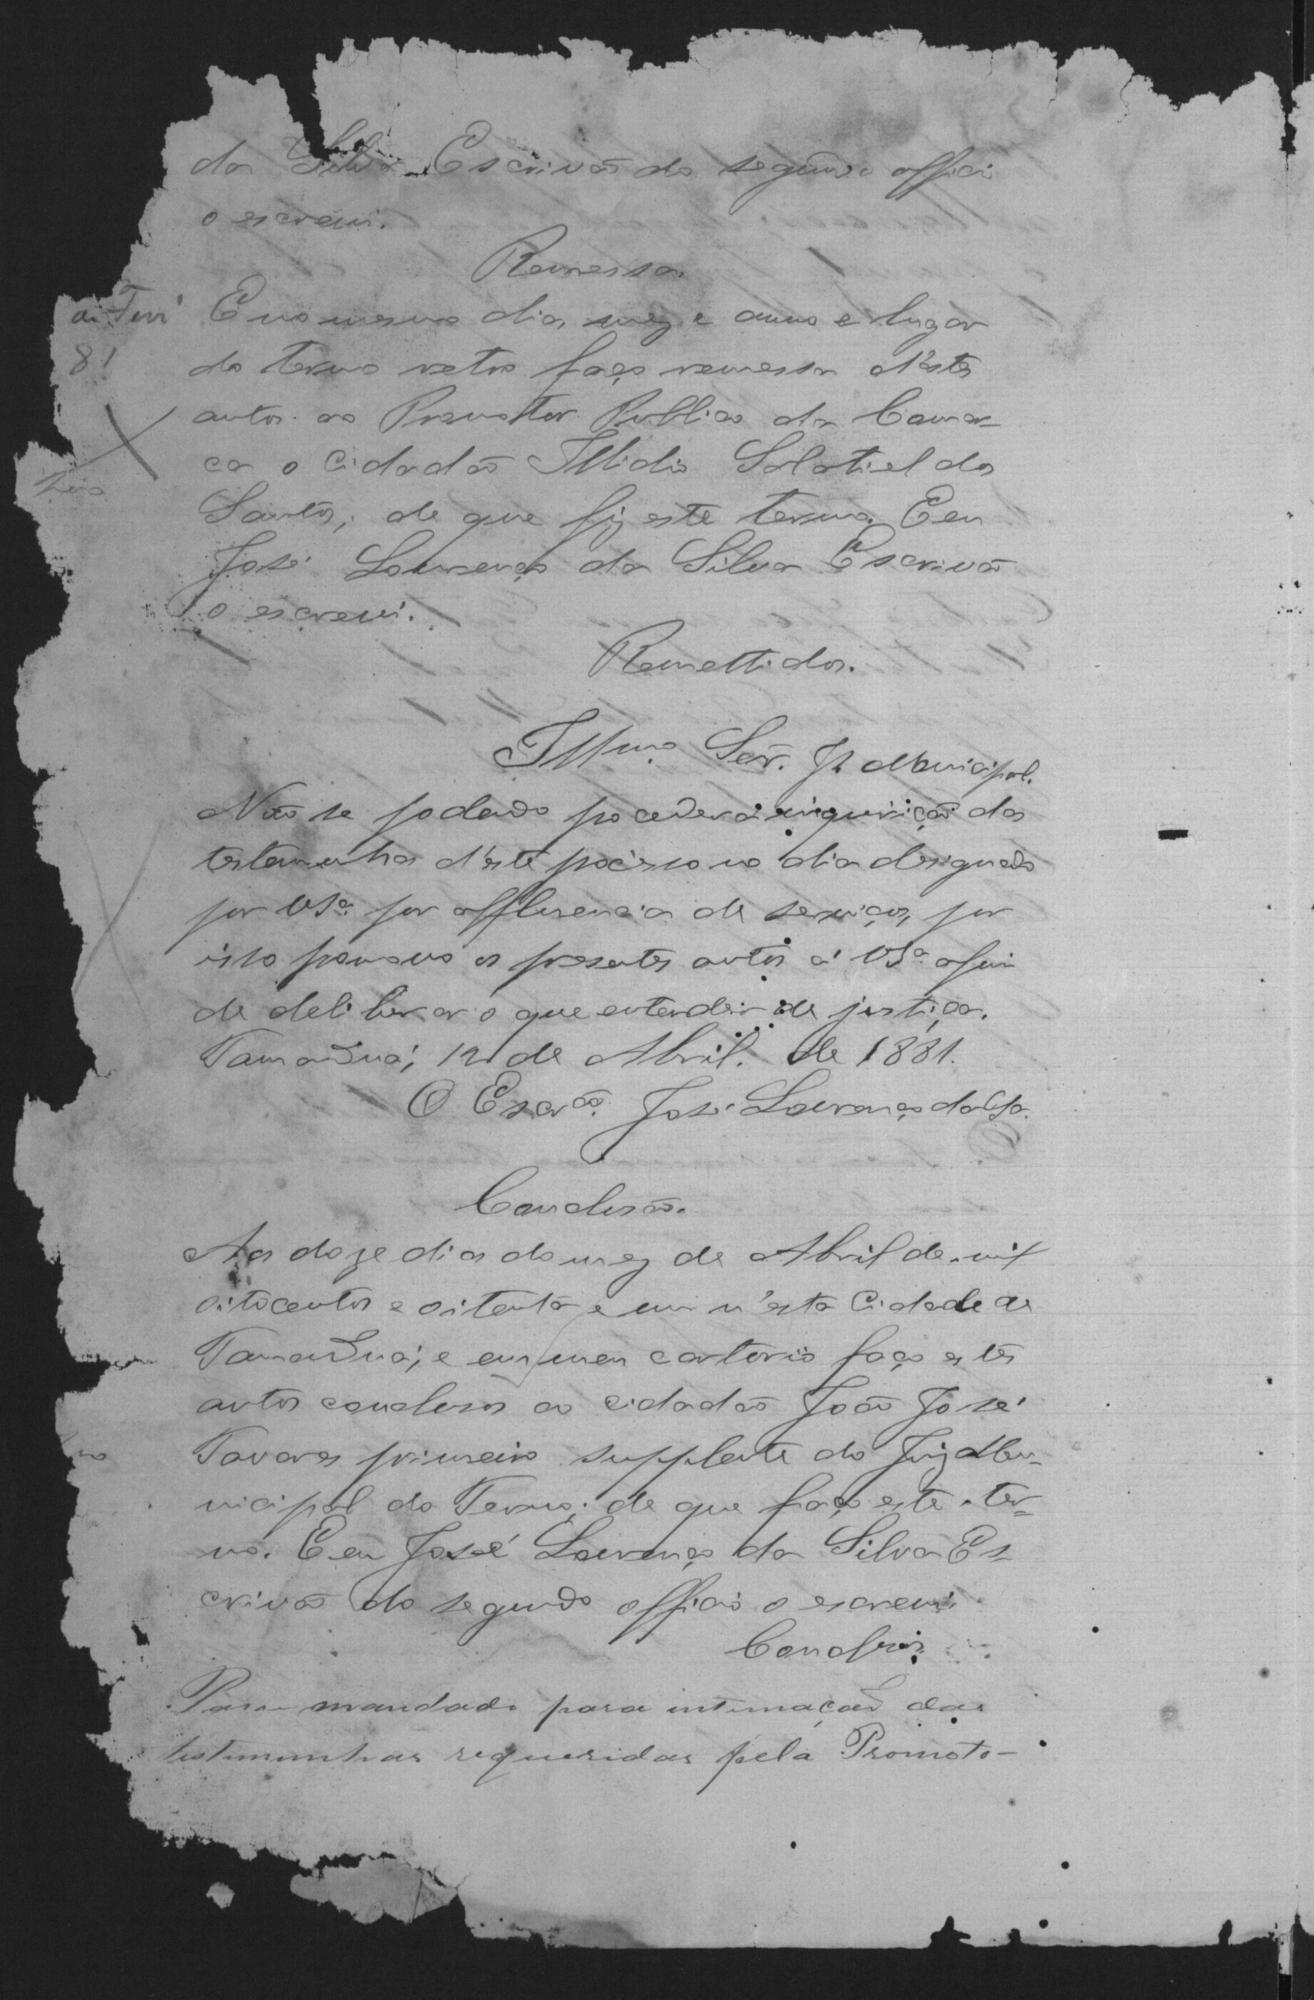 da Silva Escrivão do segundo offici
o escrevi.
Remessa.
E no mesmo dia, mez e anno e lugar
81
do termo retro faço remessa d'estes
autos ao Promotor Publico da Comar-
ca o cidadão Illidio Salatiel dos
Santos, de que fiz este termo. E eu
José Lourenço da Silva Escrivão
o escrevi.
Remettidos.
Illmo. Sr. Jz. Municipal.
Não se podado proceder á inquirição das
testemunhas d'este processo no dia designado
por VSa. por affluencia de serviços, por
isto os presentes autos á VSa. afim
de deliberar o que entender de justiça.
Tamanduá, 12 de Abril. de 1881.
O Escrão. José Lourenço da Sa.
Conclusão.
Aos doze dias do mez de Abril de mil
oitocentos e oitenta e um n'esta Cidade de
Tamanduá, e em meu cartorio faço estes
autos conclusos ao cidadão João José
Tavares primeiro supplente do Juiz Mu-
nicipal do Termo; de que faço este ter-
mo. E eu José Lourenço da Silva Es-
crivão do segundo officio o escrevi.
Conclusos.
Passe mandado para intimação das
testimunhas requeridas pela Promoto-